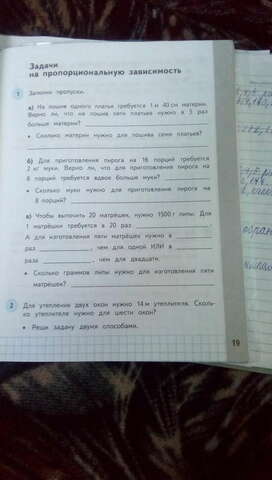 Задачи
на пропорциональную зависимость
1 Заполни пропуски.
а) На пошив одного платья требуется 1 м 40 см материи.
Верно ли, что на пошив пяти платьев нужно в 5 раз
больше материи?
• Сколько материи нужно для пошива семи платьев?
б) Для приготовления пирога на 16 порций требуется
2 кг муки. Верно ли, что для приготовления пирога на
8 порций требуется вдвое больше муки?
• Сколько муки нужно для приготовления пирога на
8 порций?
в) Чтобы выточить 20 матрёшек, нужно 1500 г липы. Для
1 матрёшки требуется в 20 раз
А для изготовления пяти матрёшек нужно в
раз , чем для одной ИЛИ в
раза , чем для двадцати.
• Сколько граммов липы нужно для изготовления пяти
матрёшек?
2 Для утепления двух окон нужно 14 м утеплителя. Сколь-
ко утеплителя нужно для шести окон?
• Реши задачу двумя способами.
19